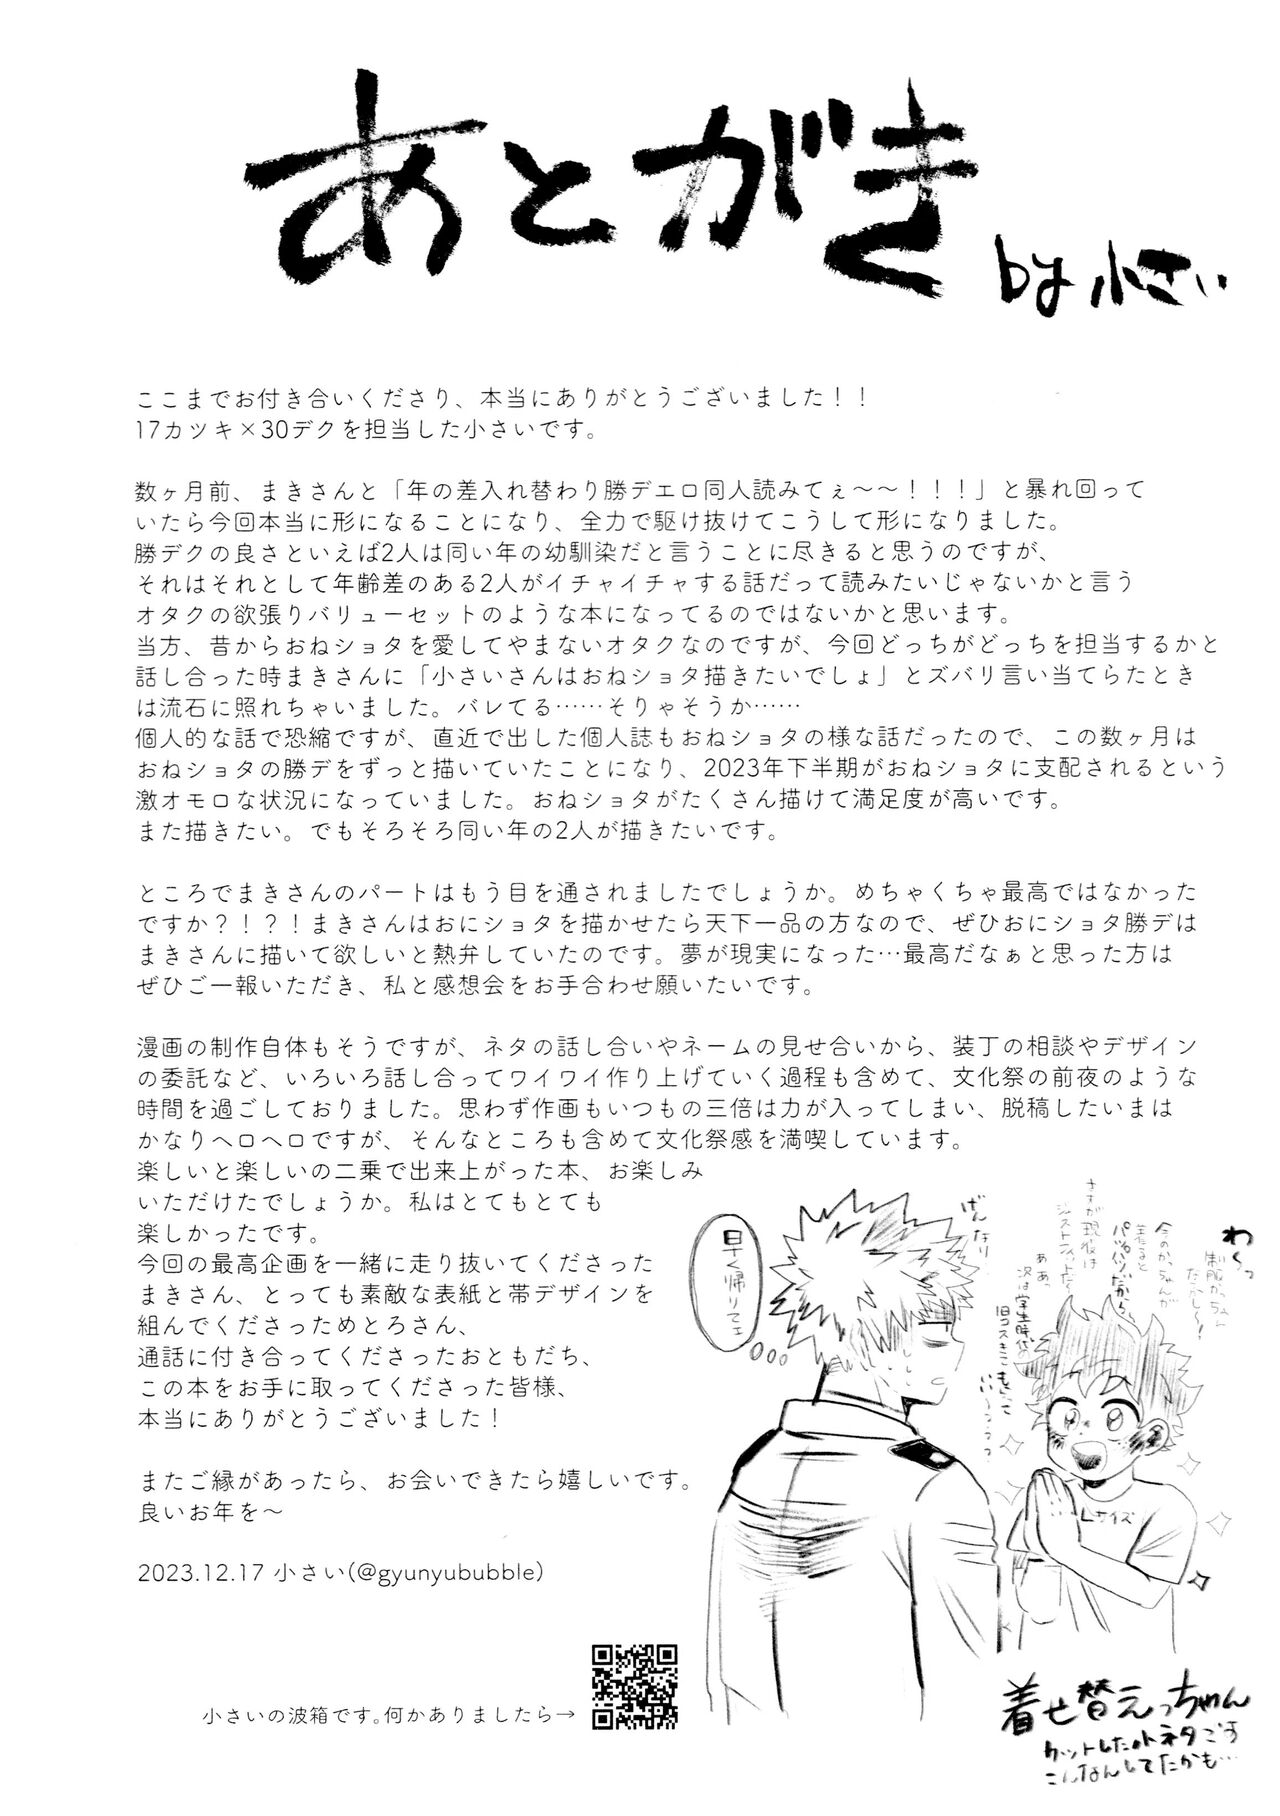 あとがき
by 小さい
ここまでお付き合いくださり、本当にありがとうございました！！
17カツキ×30デクを担当した小さいです。
数ヶ月前、まきさんと「年の差入れ替わり勝デエロ同人読みてぇ〜〜！！！」と暴れ回って
いたら今回本当に形になることになり、全力で駆け抜けてこうして形になりました。
勝デクの良さといえば2人は同い年の幼馴染だと言うことに尽きると思うのですが、
それはそれとして年齢差のある2人がイチャイチャする話だって読みたいじゃないかと言う
オタクの欲張りバリューセットのような本になってるのではないかと思います。
当方、昔からおねショタを愛してやまないオタクなのですが、今回どっちがどっちを担当するかと
話し合った時まきさんに「小さいさんはおねショタ描きたいでしょ」とズバリ言い当てらたとき
は流石に照れちゃいました。バレてる……そりゃそうか……
個人的な話で恐縮ですが、直近で出した個人誌もおねショタの様な話だったので、この数ヶ月は
おねショタの勝デをずっと描いていたことになり、2023年下半期がおねショタに支配されるという
激オモロな状況になっていました。おねショタがたくさん描けて満足度が高いです。
また描きたい。でもそろそろ同い年の2人が描きたいです。
ところでまきさんのパートはもう目を通されましたでしょうか。めちゃくちゃ最高ではなかった
ですか？！？！まきさんはおにショタを描かせたら天下一品の方なので、ぜひおにショタ勝デは
まきさんに描いて欲しいと熱弁していたのです。夢が現実になった…最高だなぁと思った方は
ぜひご一報いただき、私と感想会をお手合わせ願いたいです。
漫画の制作自体もそうですが、ネタの話し合いやネームの見せ合いから、装丁の相談やデザイン
の委託など、いろいろ話し合ってワイワイ作り上げていく過程も含めて、文化祭の前夜のような
時間を過ごしておりました。思わず作画もいつもの三倍は力が入ってしまい、脱稿したいまは
かなりヘロヘロですが、そんなところも含めて文化祭感を満喫しています。
楽しいと楽しいの二乗で出来上がった本、お楽しみ
いただけたでしょうか。私はとてもとても
楽しかったです。
今回の最高企画を一緒に走り抜いてくださった
まきさん、とっても素敵な表紙と帯デザインを
組んでくださっためとろさん、
通話に付き合ってくださったおともだち、
この本をお手に取ってくださった皆様、
本当にありがとうございました！
またご縁があったら、お会いできたら嬉しいです。
良いお年を〜
2023.12.17 小さい(@gyunyububble)
小さいの波箱です。何かありましたら→
わ〜っ
制服かっちゃん
だぁ〜！
今のかっちゃんが
着ると
パツパツだから
さすが現役は
ジャストフィットだ
ああっ
次は学生時代の
旧コスもきてもらって
いい
げんなり
早く帰りてェ
Lサイズ
着せ替えっちゃん
カットした小ネタです
こんなんしてたかも…